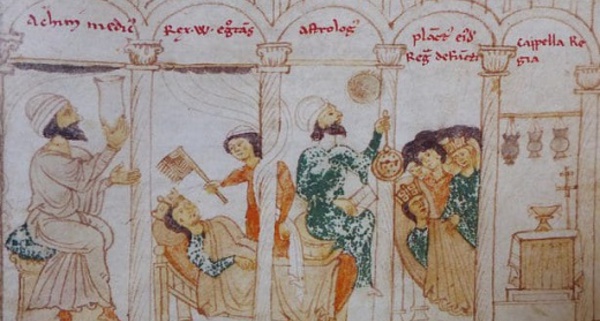 Achim medicꝰ
Rex·W· egͦtans
astrologꝰ
planctꝰ eiꝰd
Reg̅ defuncti
Cappella Re
gia